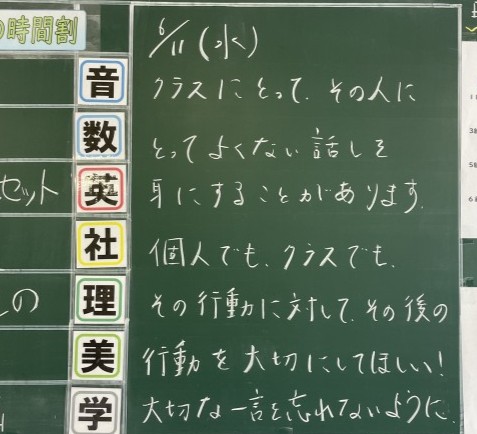 の時間割
音
数
英
社
理
美
学
セット
の
6/11(水)
クラスにとって、その人に
とってよくない話しを
耳にすることがあります。
個人でも、クラスでも、
その行動に対して、その後の
行動を大切にしてほしい!
大切な一言を忘れてないように